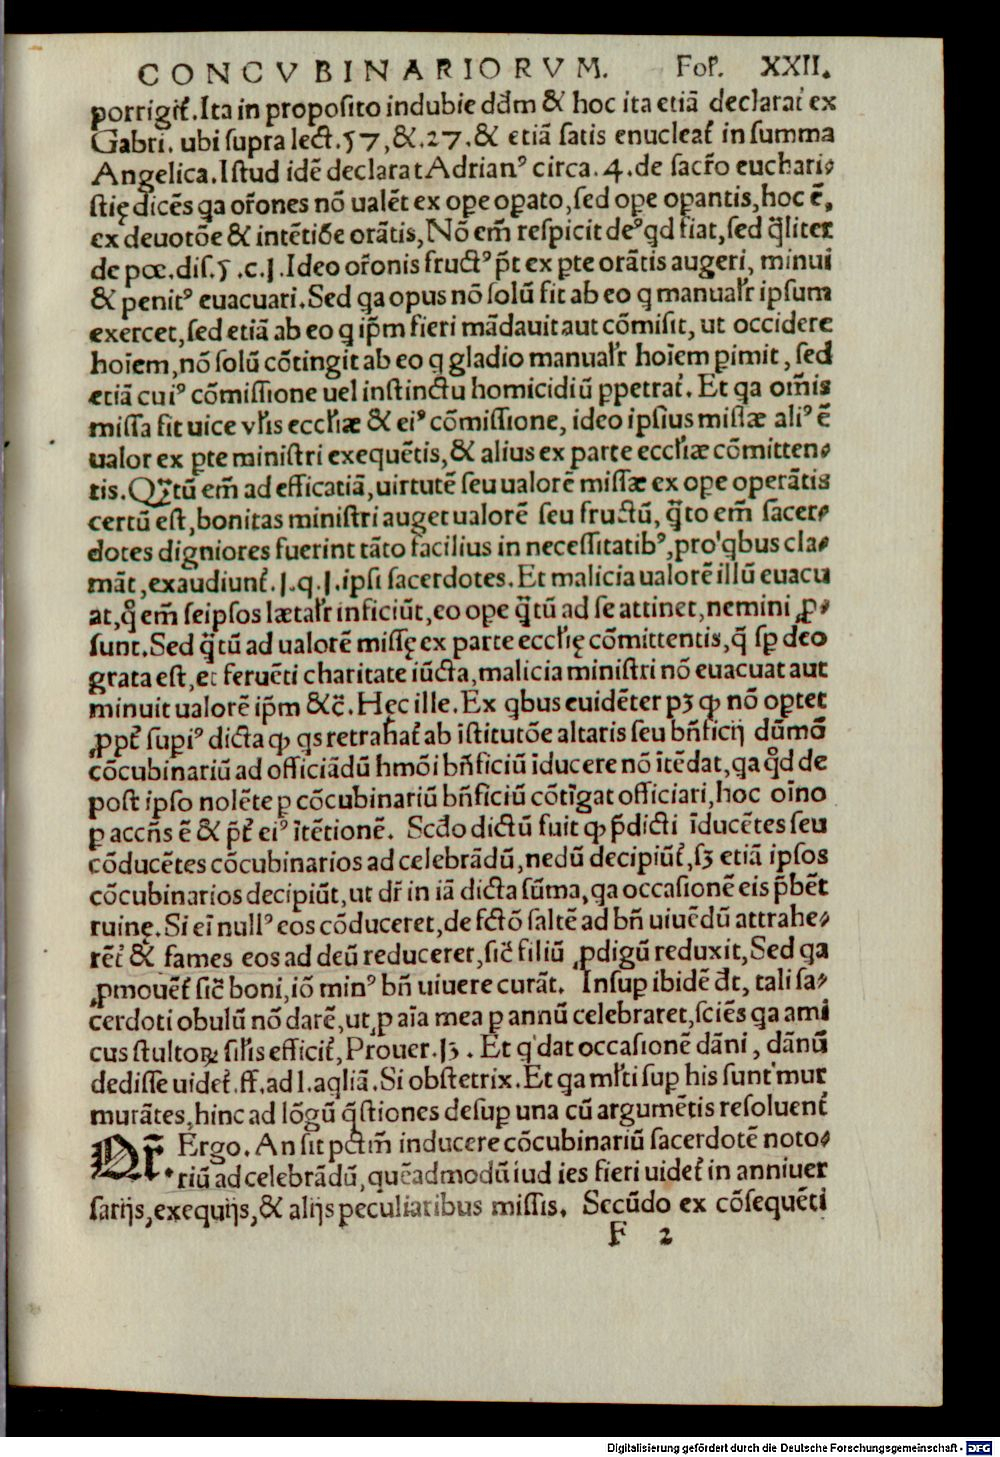 CONCVBINARIORVM. Foł. XXII.
porrigit᷑. Ita in proposito indubie dd̄m & hoc ita etiā declarat ex
Gabri. ubi supra lect. 57, &. 27. & etiā satis enucleat᷑ in summa
Angelica. Istud idē declarat Adrianꝰ circa. 4. de sacr̄o euchari⸗
stię dicēs qa or̄ones nō ualēt ex ope opato, sed ope opantis, hoc ē,
ex deuotōe & intētiōe orātis, Nō em̄ respicit deꝰ qd fiat, sed q̄liter
de pœ. dis. 5 .c. J. Ideo or̄onis fructꝰ p̄t ex pte orātis augeri, minui
& penitꝰ euacuari. Sed qa opus nō solū fit ab eo q manualr̄ ipsum
exercet, sed etiā ab eo q ip̄m fieri mādauit aut cōmisit, ut occidere
hoīem, nō solū cōtingit ab eo q gladio manualr̄ hoīem pimit, sed
etiā cuiꝰ cōmissione uel instinctu homicidiū ppetrat᷑. Et qa om̄is
missa fit uice vl̄is eccl̄iæ & eiꝰ cōmissione, ideo ipsius missæ aliꝰ ē
ualor ex pte ministri exequētis, & alius ex parte eccl̄iæ cōmitten⸗
tis. Qꝫtū em̄ ad efficatiā, uirtutē seu ualorē missæ ex ope operātis
certū est, bonitas ministri auget ualorē seu fructū, q̄to em̄ sacer⸗
dotes digniores fuerint tāto facilius in necessitatibꝰ, pro qbus cla⸗
māt, exaudiunt᷑. J. q. J. ipsi sacerdotes. Et malicia ualorē illū euacu
at, qi em̄ seipsos lætalr̄ inficiūt, eo ope q̄tū ad se attinet, nemini ꝓ⸗
sunt. Sed q̄tū ad ualorē missę ex parte eccl̄ię cōmittentis, q̄ sp deo
grata est, et feruēti charitate iūcta, malicia ministri nō euacuat aut
minuit ualorē ip̄m &c̄. Hęc ille. Ex qbus euidēter pꝫ ꝙ nō optet
ꝓpt᷑ supiꝰ dicta ꝙ qs retrahat᷑ ab istitutōe altaris seu bn̄ficij dūmō
cōcubinariū ad officiādū hmōi bn̄ficiū īducere nō ītēdat, qa qd de
post ipso nolēte p cōcubinariū bn̄ficiū cōtīgat officiari, hoc oīno
p accn̄s ē & p̄t᷑ eiꝰ ītētionē. Scd̄o dictū fuit ꝙ p̄dicti īducētes seu
cōducētes cōcubinarios ad celebrādū, nedū decipiūt᷑, sꝫ etiā ipsos
cōcubinarios decipiūt, ut dr̄ in iā dicta sūma, qa occasionē eis p̄bēt
ruinę. Si eī nullꝰ eos cōduceret, de fctō saltē ad bn̄ uiuēdū attrahe⸗
rēt᷑ & fames eos ad deū reduceret, sic̄ filiū ꝓdigū reduxit, Sed qa
ꝓmouēt᷑ sic̄ boni, iō minꝰ bn̄ uiuere curāt. Insup ibidē dt̄, tali sa⸗
cerdoti obulū nō darē, ut ꝓ aīa mea p annū celebraret, sciēs qa ami
cus stultoꝝ sil̄is efficit᷑, Prouer. J3. Et q dat occasionē dāni, dānū
dedisse uidet᷑. ff. ad l. aqliā. Si obstetrix. Et qa ml̄ti sup his sunt mur
murātes, hinc ad lōgū q̄stiones desup una cū argumētis resoluent᷑
Qr̄ Ergo. An sit pctm̄ inducere cōcubinariū sacerdotē noto⸗
riū ad celebrādū, quēadmodū iud ies fieri uidet᷑ in anniuer
sarijs, exequijs, & alijs peculiaribus missis. Secūdo ex cōsequēti
F 2
Digitalisierung gefördert durch die Deutsche Forschungsgemeinschaft - DFG